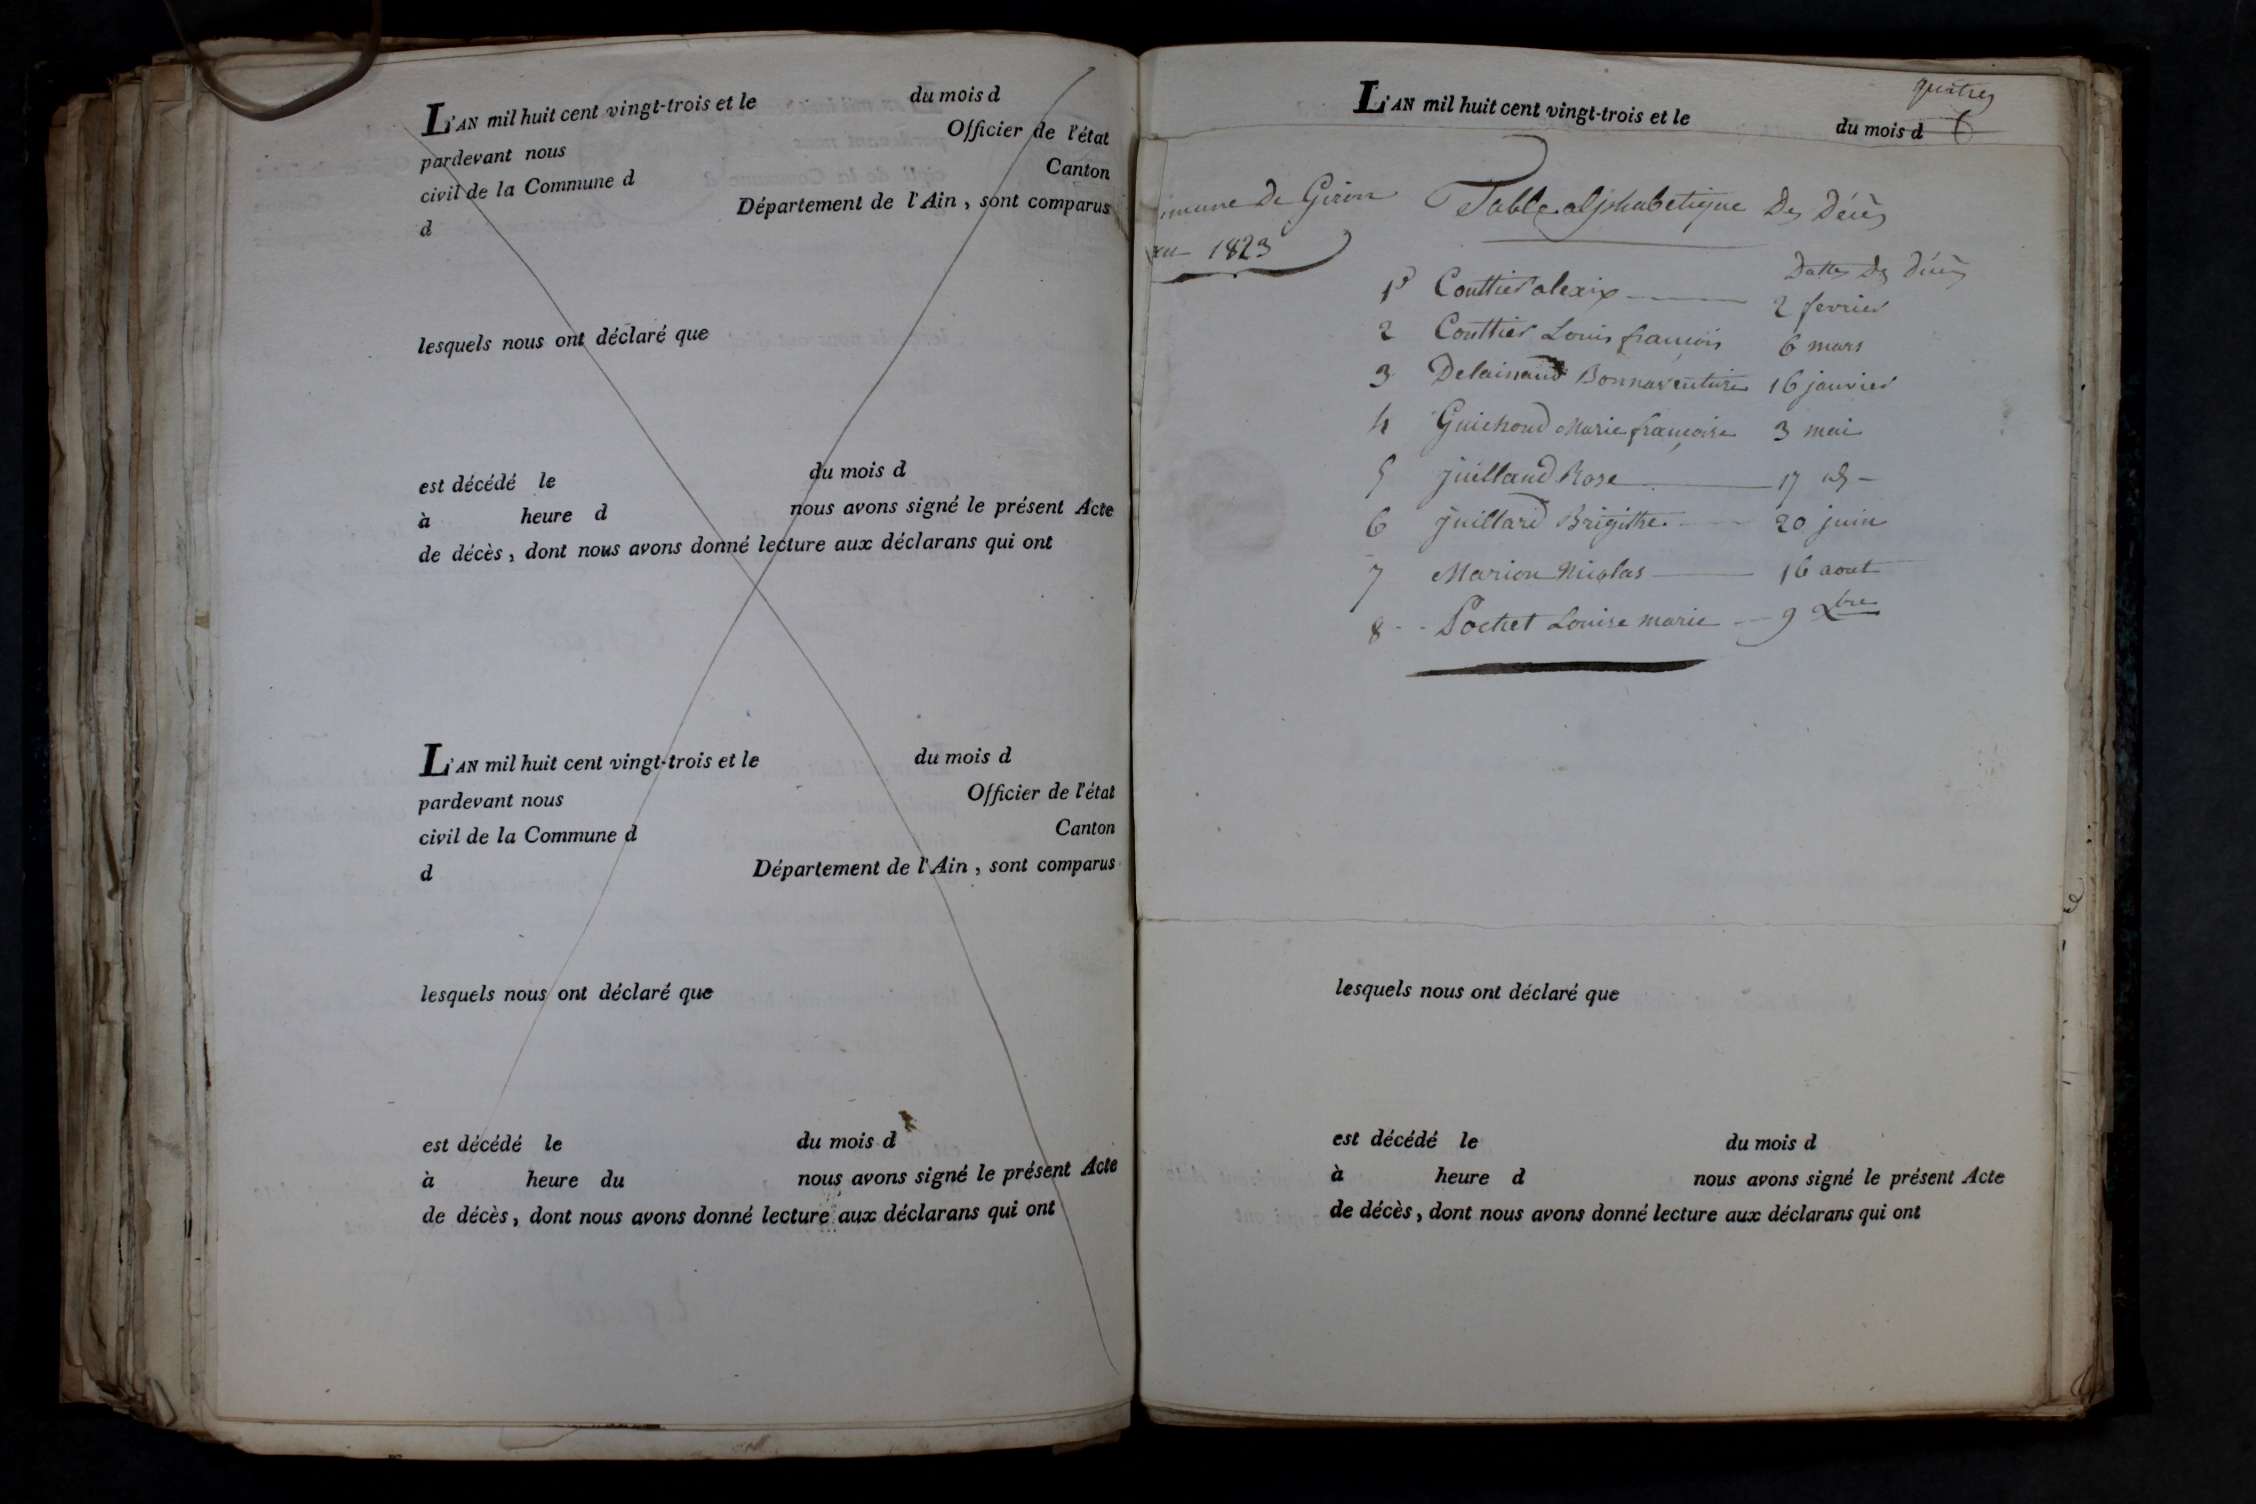 L'AN mil huit cent vingt-trois et le du mois d
pardevant nous Officier de l'état
civil de la Commune d Canton
d Département de l'Ain, sont comparus
lesquels nous ont déclaré que
est décédé le du mois d
à heure d nous avons signé le présent Acte
de décès, dont nous avons donné lecture aux déclarans qui ont
L'AN mil huit cent vingt-trois et le du mois d
pardevant nous Officier de l'état
civil de la Commune d Canton
d Département de l'Ain, sont comparus
lesquels nous ont déclaré que
est décédé le du mois d
à heure du nous avons signé le présent Acte
de décès, dont nous avons donné lecture aux déclarans qui ont
L'AN mil huit cent vingt-trois et le du mois d
mune de Giron Table alphabetique Des Décès
1823
Dattes Des Décès
1 Couttier alexix 2 fevrier
2 Couttier Louis françois 6 mars
3 Delainaud Bonnaventure 16 janvier
4 Guichoud Marie françoise 3 mai
5 Juilland Rose 17
6 Juillard Brigitte 20 juin
7 Marion Nicolas 16 aout
8 Pochet Louise marie 9 Xbre
lesquels nous ont déclaré que
est décédé le du mois d
à heure d nous avons signé le présent Acte
de décès, dont nous avons donné lecture aux déclarans qui ont